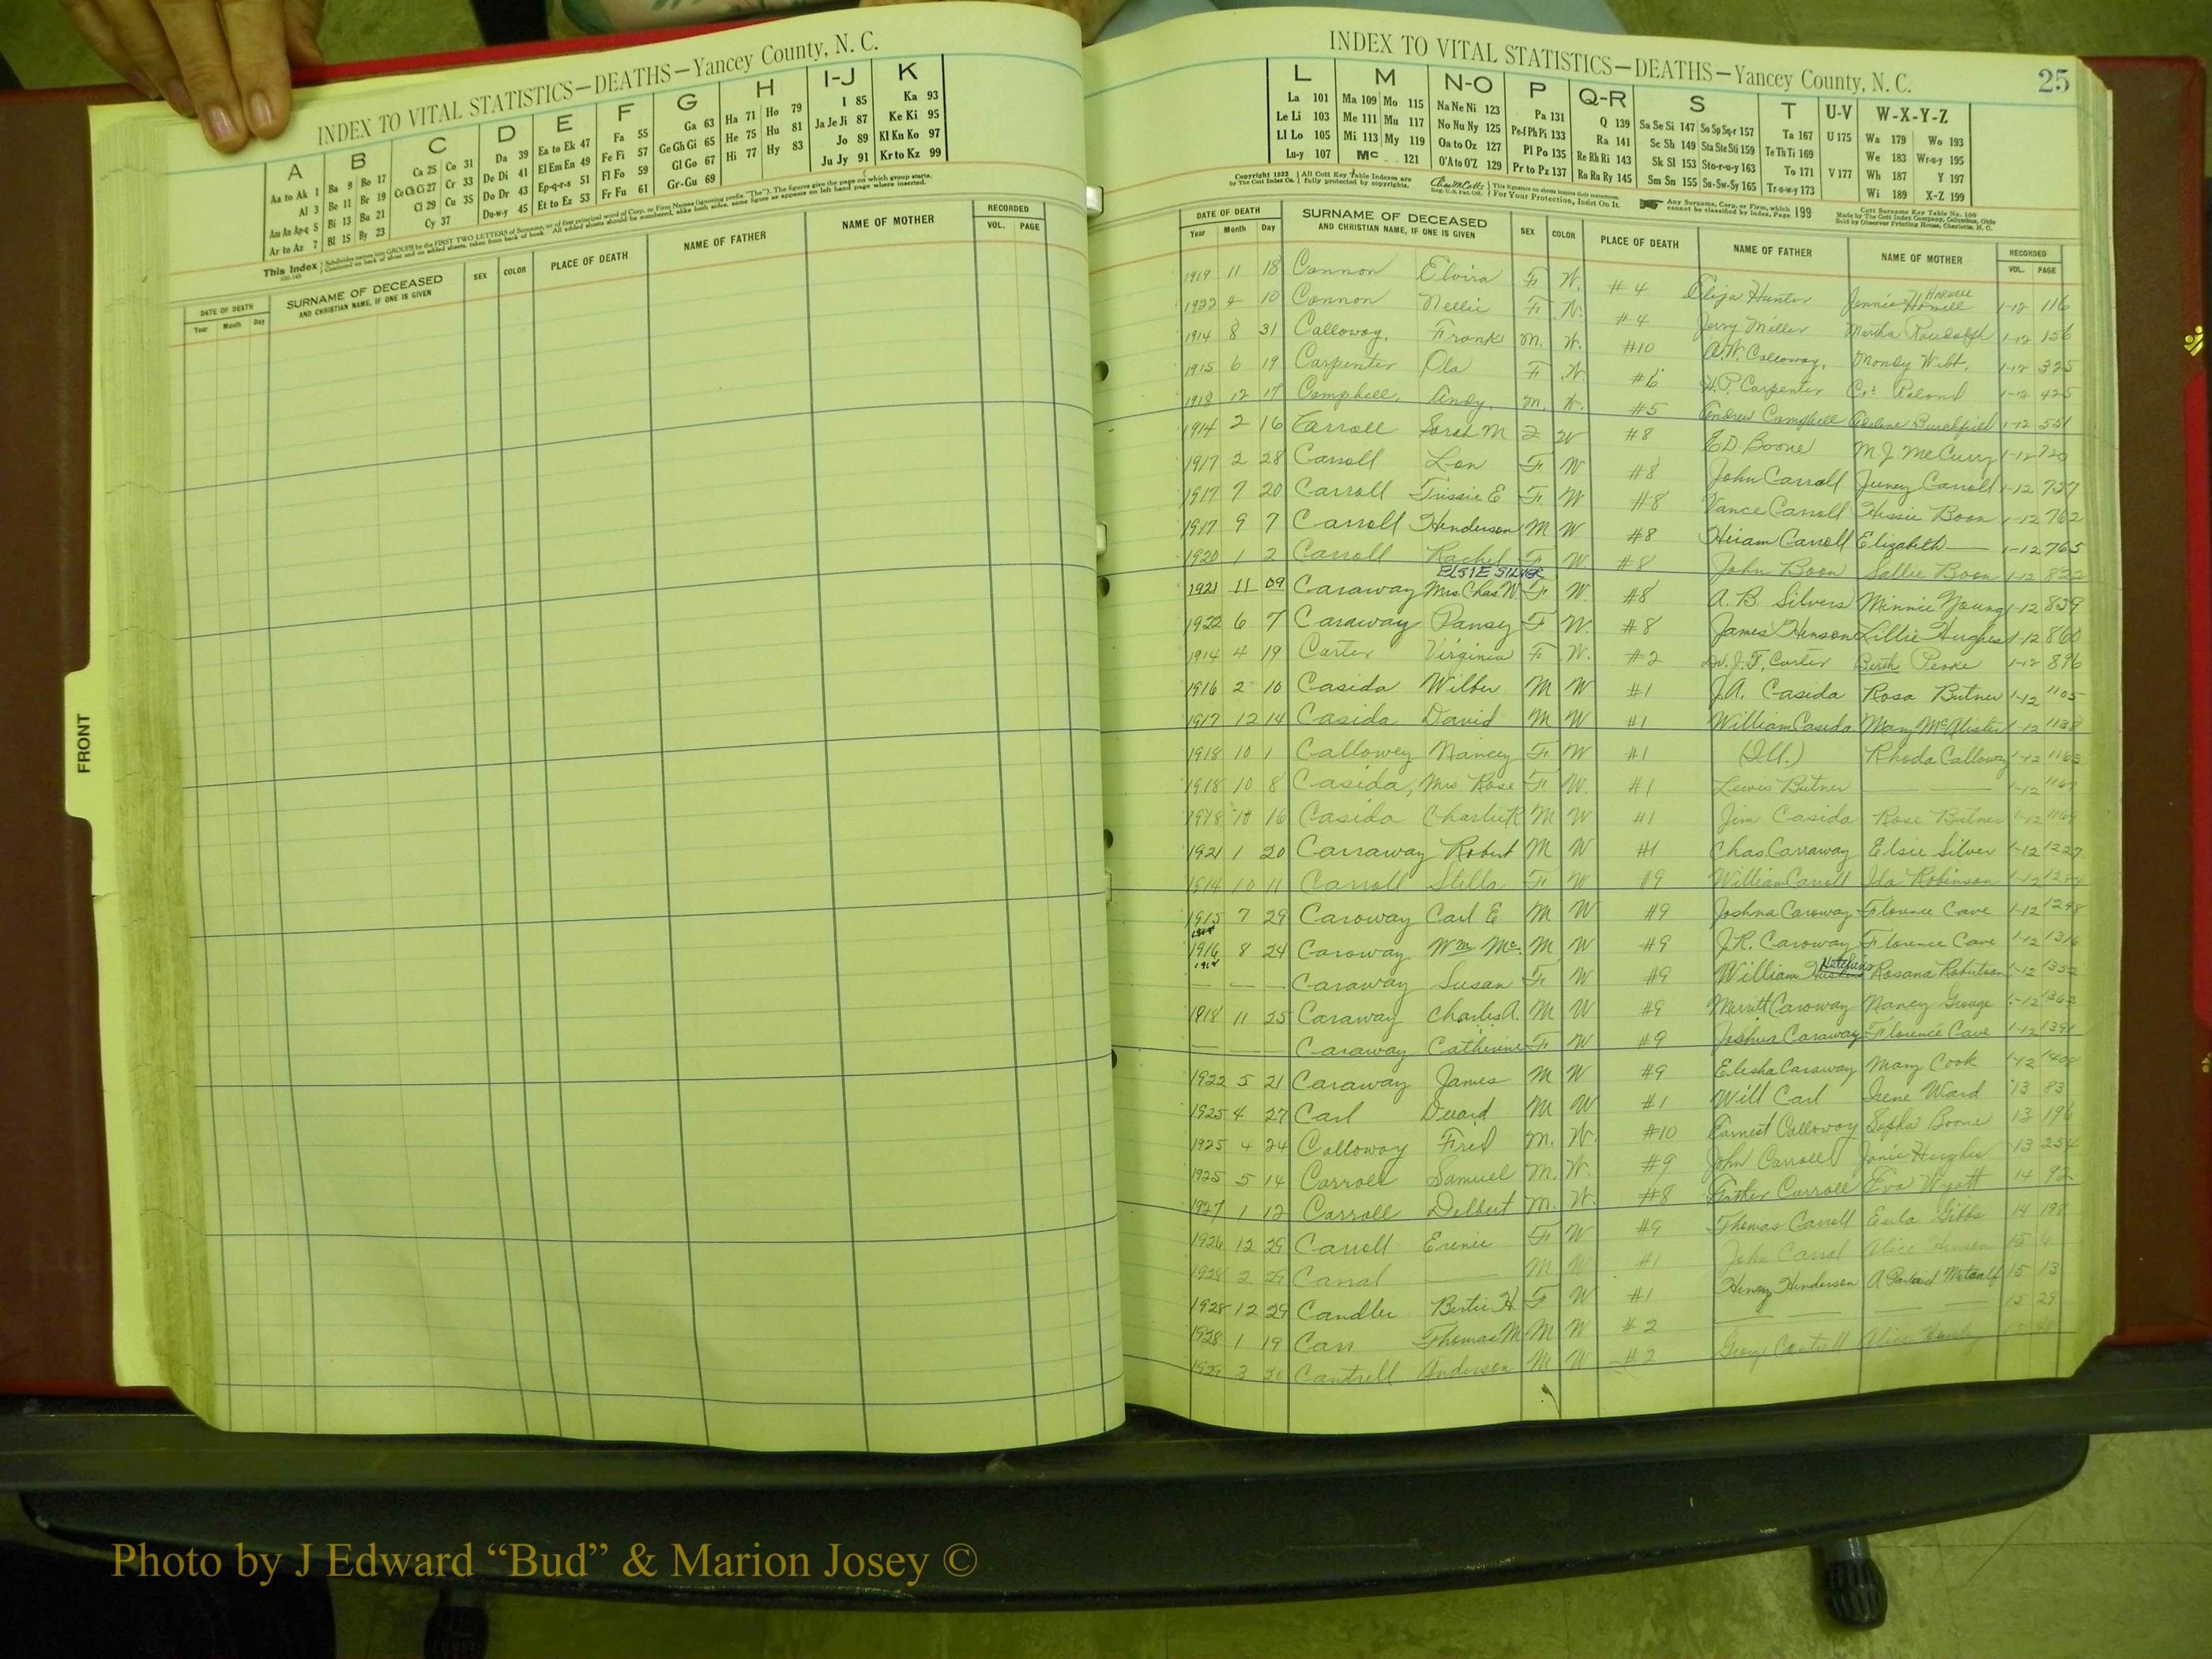 INDEX TO VITAL STATISTICS—DEATHS—Yancey County, N. C.
A B C D E F G H I-J K
Aa to Ak 1 Ba 9 Bo 17 Ca 25 Co 31 Da 39 Ea to Ek 47 Fa 55 Ga 63 Ha 71 Ho 79 I 85 Ka 93
Al 3 Be 11 Br 19 Ce Ch Ci 27 Cr 33 De Di 41 El Em En 49 Fe Fi 57 Ge Gh Gi 65 He 75 Hu 81 Ja Je Ji 87 Ke Ki 95
Am An Ap-q 5 Bi 13 Bu 21 Cl 29 Cu 35 Do Dr 43 Ep-q-r-s 51 Fl Fo 59 Gl Go 67 Hi 77 Hy 83 Jo 89 Kl Kn Ko 97
Ar to Az 7 Bl 15 By 23 Cy 37 Du-w-y 45 Et to Ez 53 Fr Fu 61 Gr-Gu 69 Ju Jy 91 Kr to Kz 99
This Index
DATE OF DEATH SURNAME OF DECEASED SEX COLOR PLACE OF DEATH NAME OF FATHER NAME OF MOTHER RECORDED
Year Month Day AND CHRISTIAN NAME, IF ONE IS GIVEN VOL. PAGE
FRONT
INDEX TO VITAL STATISTICS—DEATHS—Yancey County, N. C. 25
L M N-O P Q-R S T U-V W-X-Y-Z
La 101 Ma 109 Mo 115 Na Ne Ni 123 Pa 131 Q 139 Sa Se Si 147 So Sp Sq-r 157 Ta 167 U 175 Wa 179 Wo 193
Le Li 103 Me 111 Mu 117 No Nu Ny 125 Pe-f Ph Pi 133 Ra 141 Sc Sh 149 Sta Ste Sti 159 Te Th Ti 169 V 177 We 183 Wr-u-y 195
Ll Lo 105 Mi 113 My 119 Oa to Oz 127 Pl Po 135 Re Rh Ri 143 Sk Sl 153 Sto-r-u-y 163 To 171 Wh 187 Y 197
Lu-y 107 Mc 121 O'A to O'Z 129 Pr to Pz 137 Ro Ru Ry 145 Sm Sn 155 Su-Sw-Sy 165 Tr-u-w-y 173 Wi 189 X-Z 199
Copyright 1922 by The Cott Index Co. All Cott Key Table Indexes are fully protected by copyrights. For Your Protection, Insist On It. Any Surname, Corp. or Firm, which cannot be classified by Index, Page 199
DATE OF DEATH SURNAME OF DECEASED SEX COLOR PLACE OF DEATH NAME OF FATHER NAME OF MOTHER RECORDED
Year Month Day AND CHRISTIAN NAME, IF ONE IS GIVEN VOL. PAGE
1919 11 18 Cannon Elvira F W. #4 Eliza Hunter Jennie Howell HARWELL 1-12 116
1922 4 10 Cannon Nellie F W. #4 Jerry Miller Martha Randolph 1-12 156
1914 8 31 Calloway, Frank M. W. #10 A.W. Calloway, 1-12 325
1915 6 19 Carpenter Ola F W. #6 Carpenter 1-12 425
1918 12 17 Campbell, Andy. M. W. #5 Andrew Campbell Burchfield 1-12 551
1914 2 16 Carroll Sarah M F W #8 E.D. Boone M J McCurry 1-12 720
1917 2 28 Carroll Lon F W #8 John Carroll Juney Carroll 1-12 757
1917 7 20 Carroll Trissie E F W #8 Vance Carroll Hissie Boon 1-12 762
1917 9 7 Carroll Henderson M W #8 Hiram Carroll Elizabeth — 1-12 765
1920 1 2 Carroll Rachel F W #8 John Boon Sallie Boon 1-12 822
ELSIE SILVER
1921 11 09 Caraway Mrs. Chas. W. F W. #8 A. B. Silvers Minnie Young 1-12 839
1922 6 7 Caraway Pansy F W. #8 James Henson Lillie Hughes 1-12 860
1914 4 19 Carter Virginia F W. #2 Dr. J. F. Carter Berth 1-12 896
1916 2 10 Casida Wilber M W #1 J.A. Casida Rosa Butner 1-12 1105
1917 12 14 Casida David M W #1 William Casida Mary McAlister 1-12 1138
1918 10 1 Callowey Nancey F W #1 (Ill.) Rhoda Callowey 1-12 1163
1918 10 8 Casida, Mrs Rose F W. #1 Lewis Butner — — 1-12
1918 16 Casida Charlie K M W #1 Jim Casida Rose Butner 1-12 1169
1921 1 20 Carraway Robert M W #1 Chas. Carraway Elsie Silver 1-12 1227
1914 10 11 Carroll Stella F W #9 William Carroll Ida Robinson 1-12 1284
1915 7 29 Caroway Carl E M W #9 Joshua Caroway Florence Cave 1-12 1298
1916 8 24 Caroway Wm Mc. M W #9 J.R. Caroway Florence Cave 1-12 1316
— — — Caraway Susan F W #9 William Rosana Robertson 1-12 1352
1918 11 25 Caraway Charles A. M W #9 Merritt Caroway Nancy George 1-12 1362
— — — Caraway Catherine F W #9 Joshua Caraway Florence Cave 1-12 1391
1922 5 21 Caraway James M W #9 Elisha Caraway Mary Cook 1-12 1408
1925 4 27 Carl Duard M W #1 Will Carl Irene Ward 13 83
1925 4 24 Calloway Fred M. W. #10 Earnest Calloway Boone 13 196
1925 5 14 Carroll Samuel M. W. #9 John Carroll Janie Hughes 13 254
1927 1 12 Carroll Delbert M. W. #8 Carroll Eva Wyatt 14 92
1926 12 29 Carroll Erenie F W #9 Thomas Carroll Eula Gibbs 14 198
1928 2 29 Carral — M W #1 John Carral Alice Henson 15 6
1928 12 29 Candler Bertie H. F W #1 Henry Henderson Metcalf 15 13
1928 1 19 Carr Thomas M M W #2 — — 15 29
1929 3 Cantrell Anderson M W #2 George Cantrell Alice 15
Photo by J Edward “Bud” & Marion Josey ©